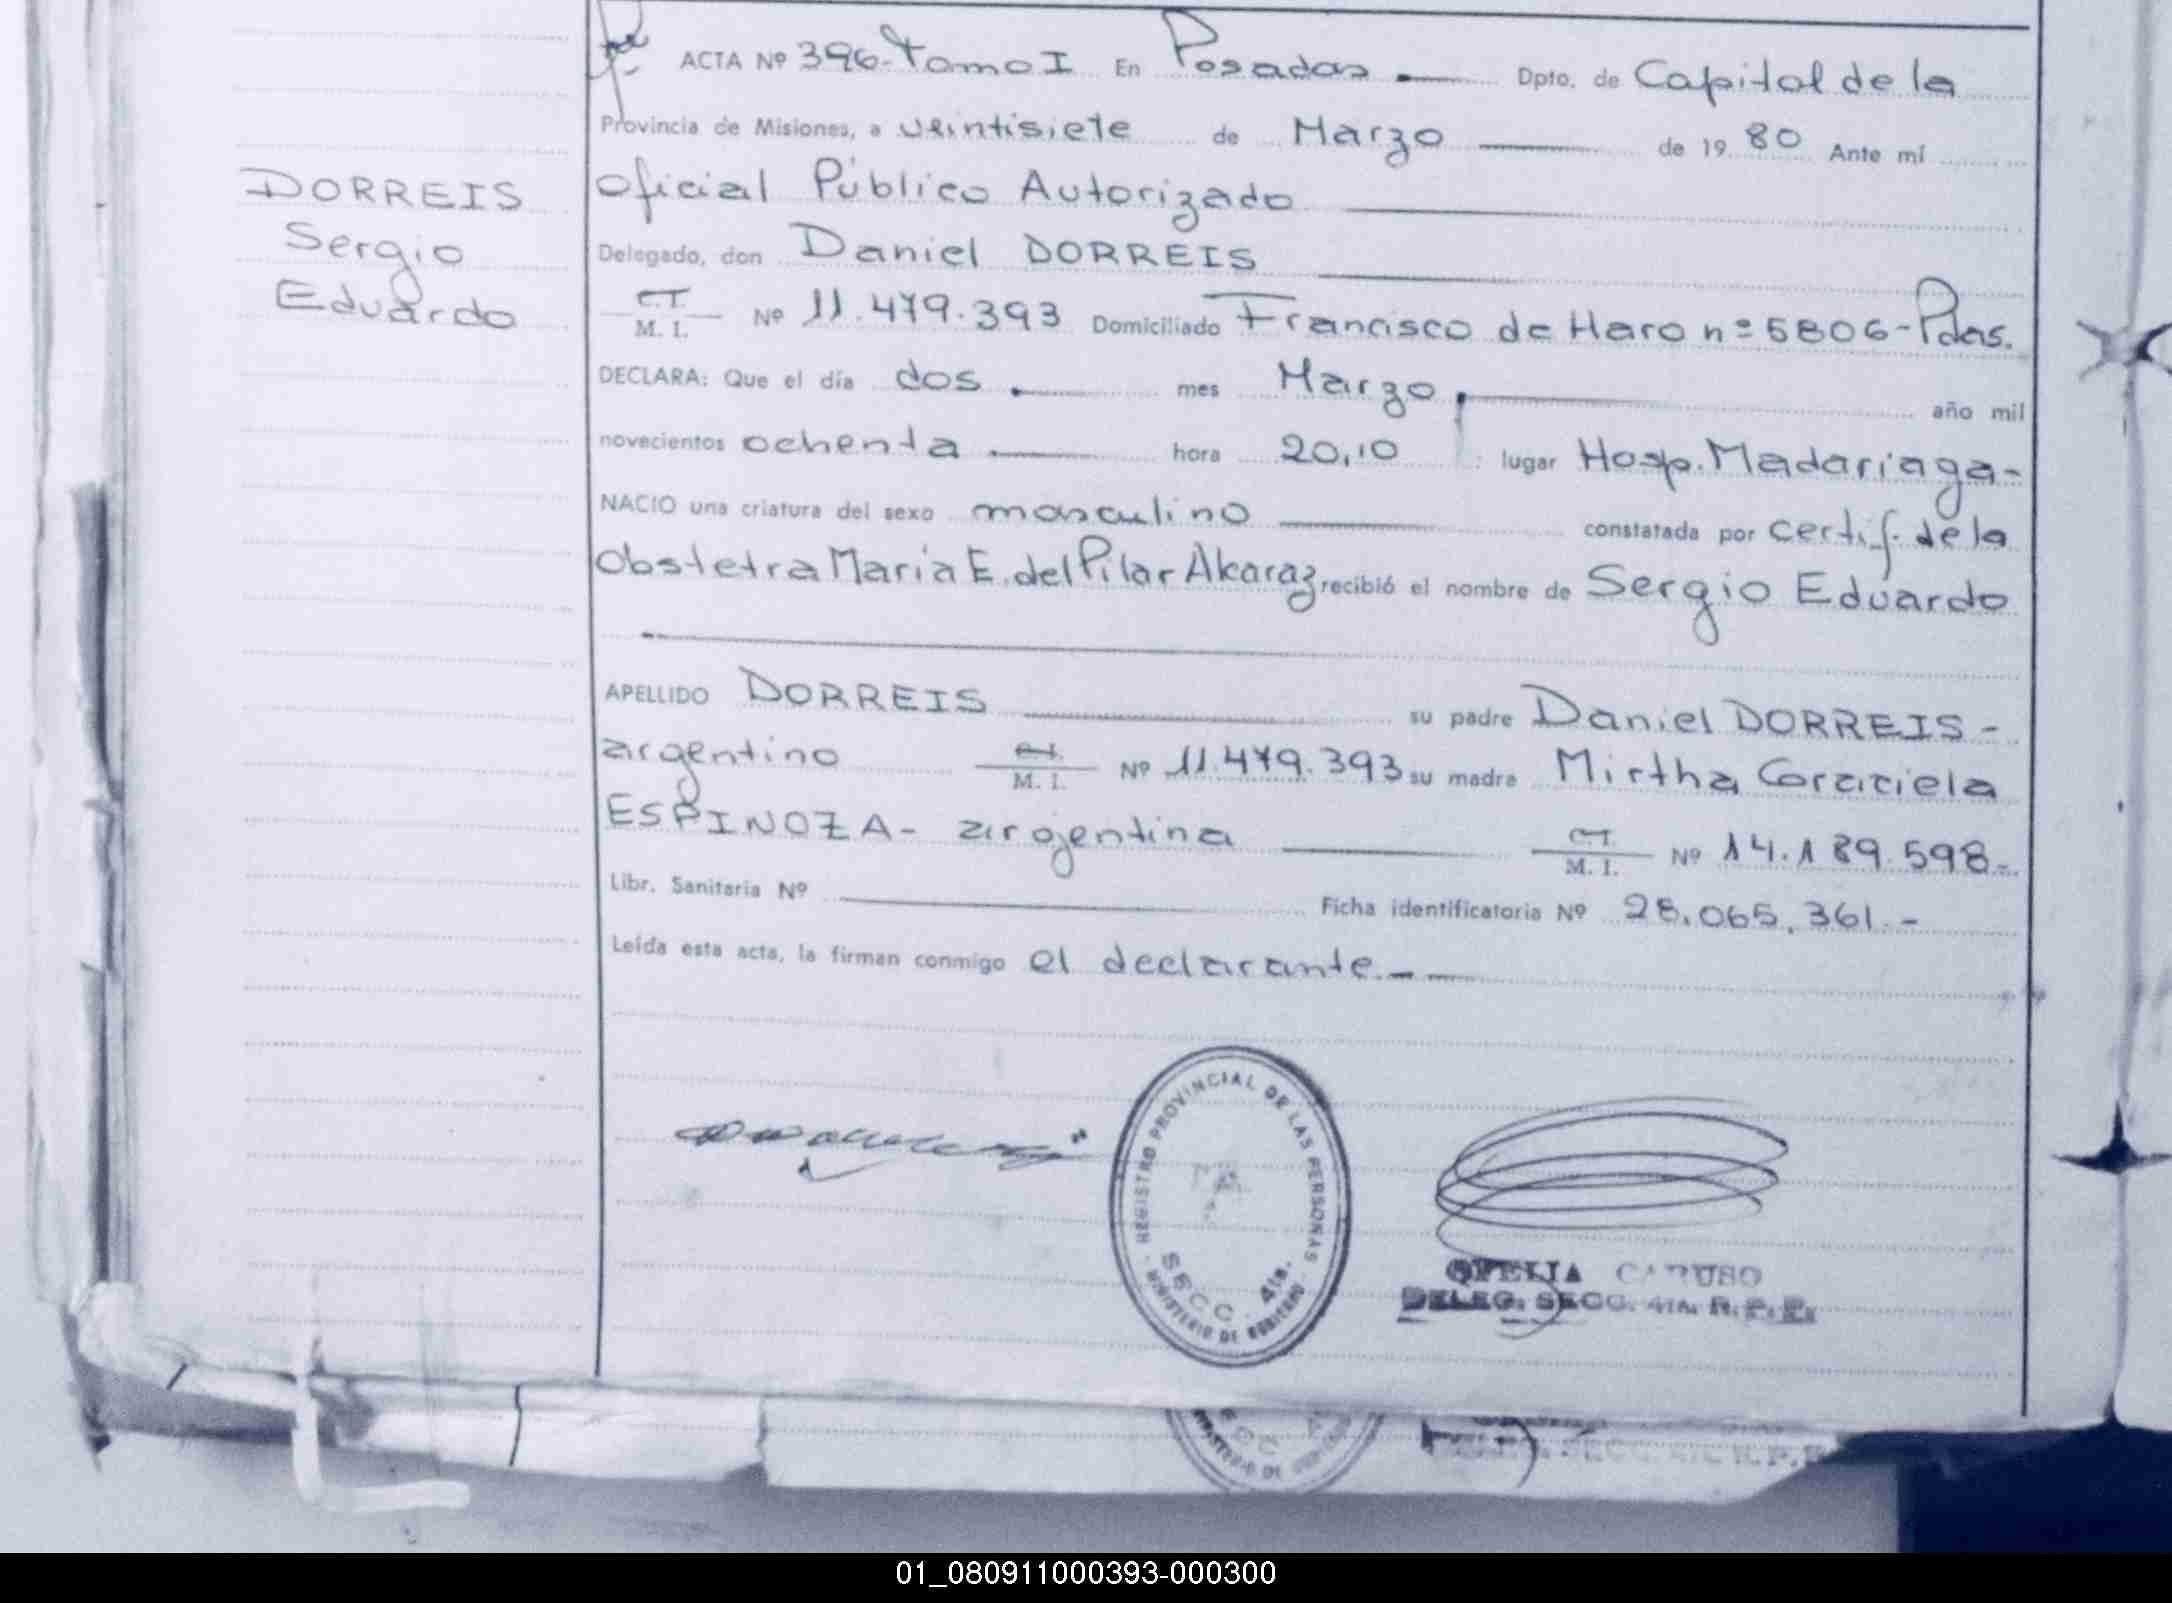 ACTA Nº 396-Tomo I En Posadas Dpto. de Capital de la
Provincia de Misiones, a veintisiete de Marzo de 19 80 Ante mí
DORREIS
Sergio
Eduardo
Oficial Público Autorizado
Delegado, don Daniel DORREIS
C.I.
M. I. Nº 11.479.393 Domiciliado Francisco de Haro nº 5806-Pdas.
DECLARA: Que el día dos mes Marzo año mil
novecientos ochenta hora 20,10 lugar Hosp. Madariaga-
NACIO una criatura del sexo masculino constatada por certif. de la
Obstetra María E. del Pilar Alcaraz recibió el nombre de Sergio Eduardo
APELLIDO DORREIS su padre Daniel DORREIS-
argentino C.I. M. I. Nº 11.479.393 su madre Mirtha Graciela
ESPINOZA- argentina C.I. M. I. Nº 14.189.598-
Libr. Sanitaria Nº Ficha identificatoria Nº 28.065.361.-
Leída esta acta, la firman conmigo el declarante.-
REGISTRO PROVINCIAL DE LAS PERSONAS
SECC. 4ta.
MINISTERIO DE GOBIERNO
OFELIA CARUSO
DELEG. SECC. 4ta. R.P.P.
SECC
MINISTERIO DE
SECC. 4ta R.P.P
01_080911000393-000300